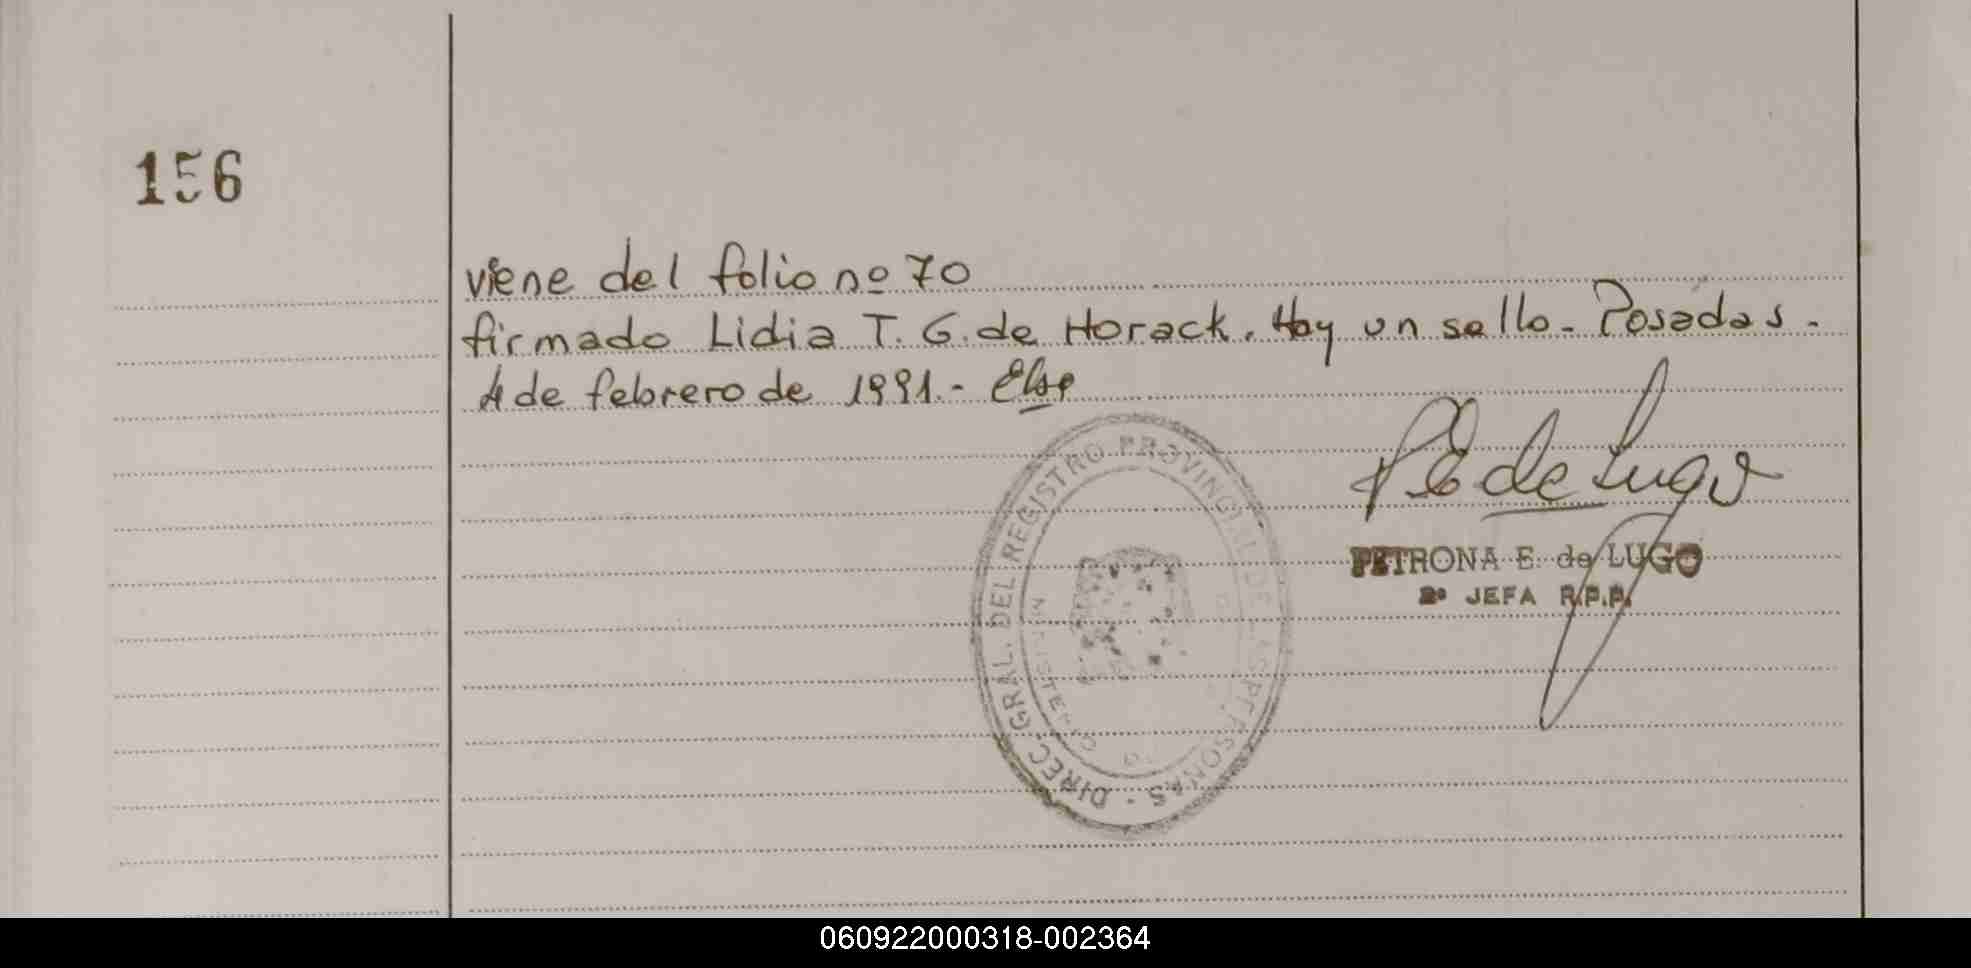 156
viene del folio nº 70
firmado Lidia T. G. de Horack. Hay un sello - Posadas.
4 de febrero de 1991.-
P E de Lugo
DIREC. GRAL. DEL REGISTRO PROVINCIAL DE LAS PERSONAS -
PETRONA E. de LUGO
2º JEFA R.P.P.
060922000318-002364